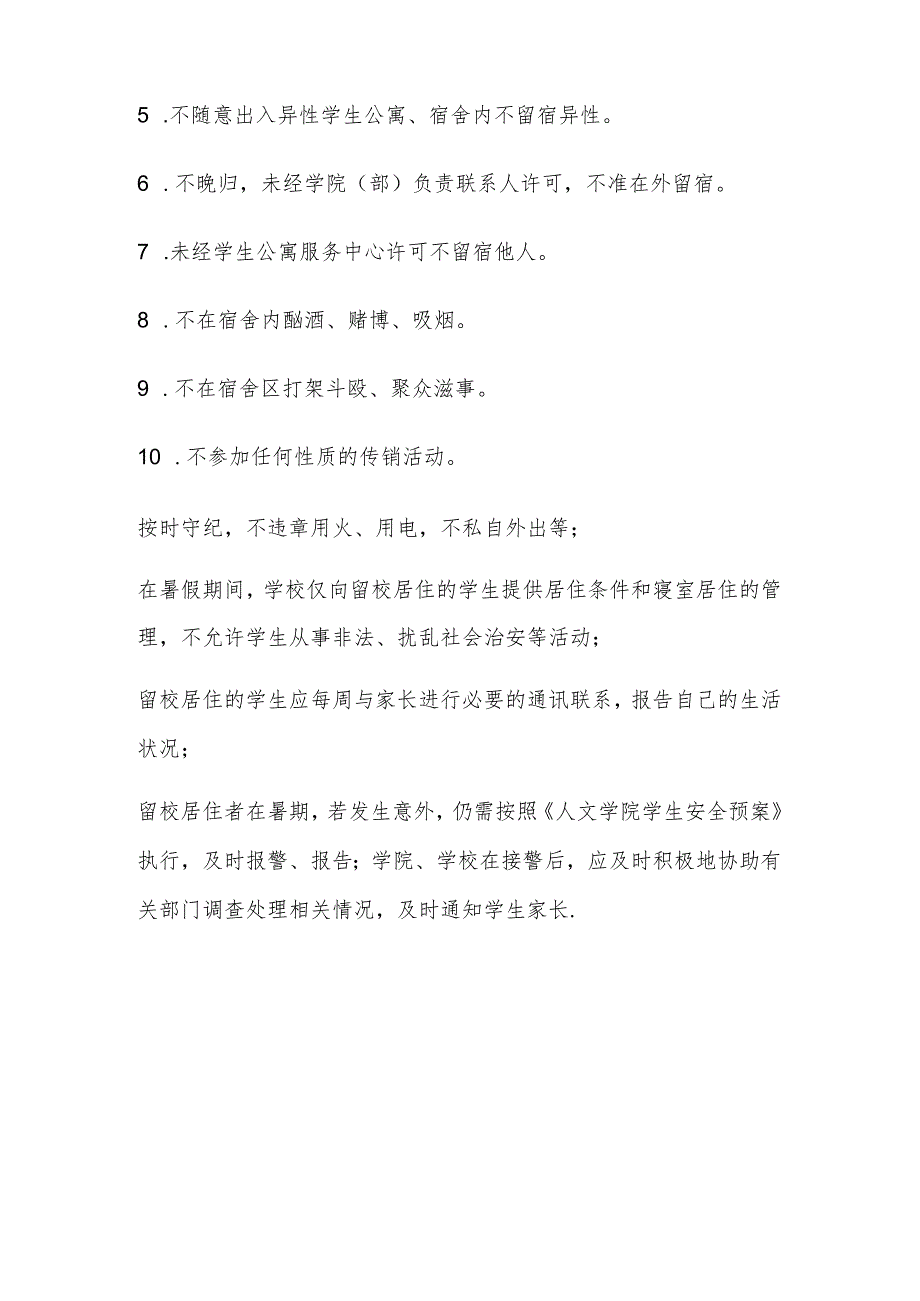 5 .不随意出入异性学生公寓、宿舍内不留宿异性。
6 . 不晚归，未经学院（部）负责联系人许可，不准在外留宿。
7 .未经学生公寓服务中心许可不留宿他人。
8 . 不在宿舍内酗酒、赌博、吸烟。
9 . 不在宿舍区打架斗殴、聚众滋事。
10 . 不参加任何性质的传销活动。
按时守纪，不违章用火、用电，不私自外出等；
在暑假期间，学校仅向留校居住的学生提供居住条件和寝室居住的管
理，不允许学生从事非法、扰乱社会治安等活动；
留校居住的学生应每周与家长进行必要的通讯联系，报告自己的生活
状况；
留校居住者在暑期，若发生意外，仍需按照《人文学院学生安全预案》
执行，及时报警、报告；学院、学校在接警后，应及时积极地协助有
关部门调查处理相关情况，及时通知学生家长.